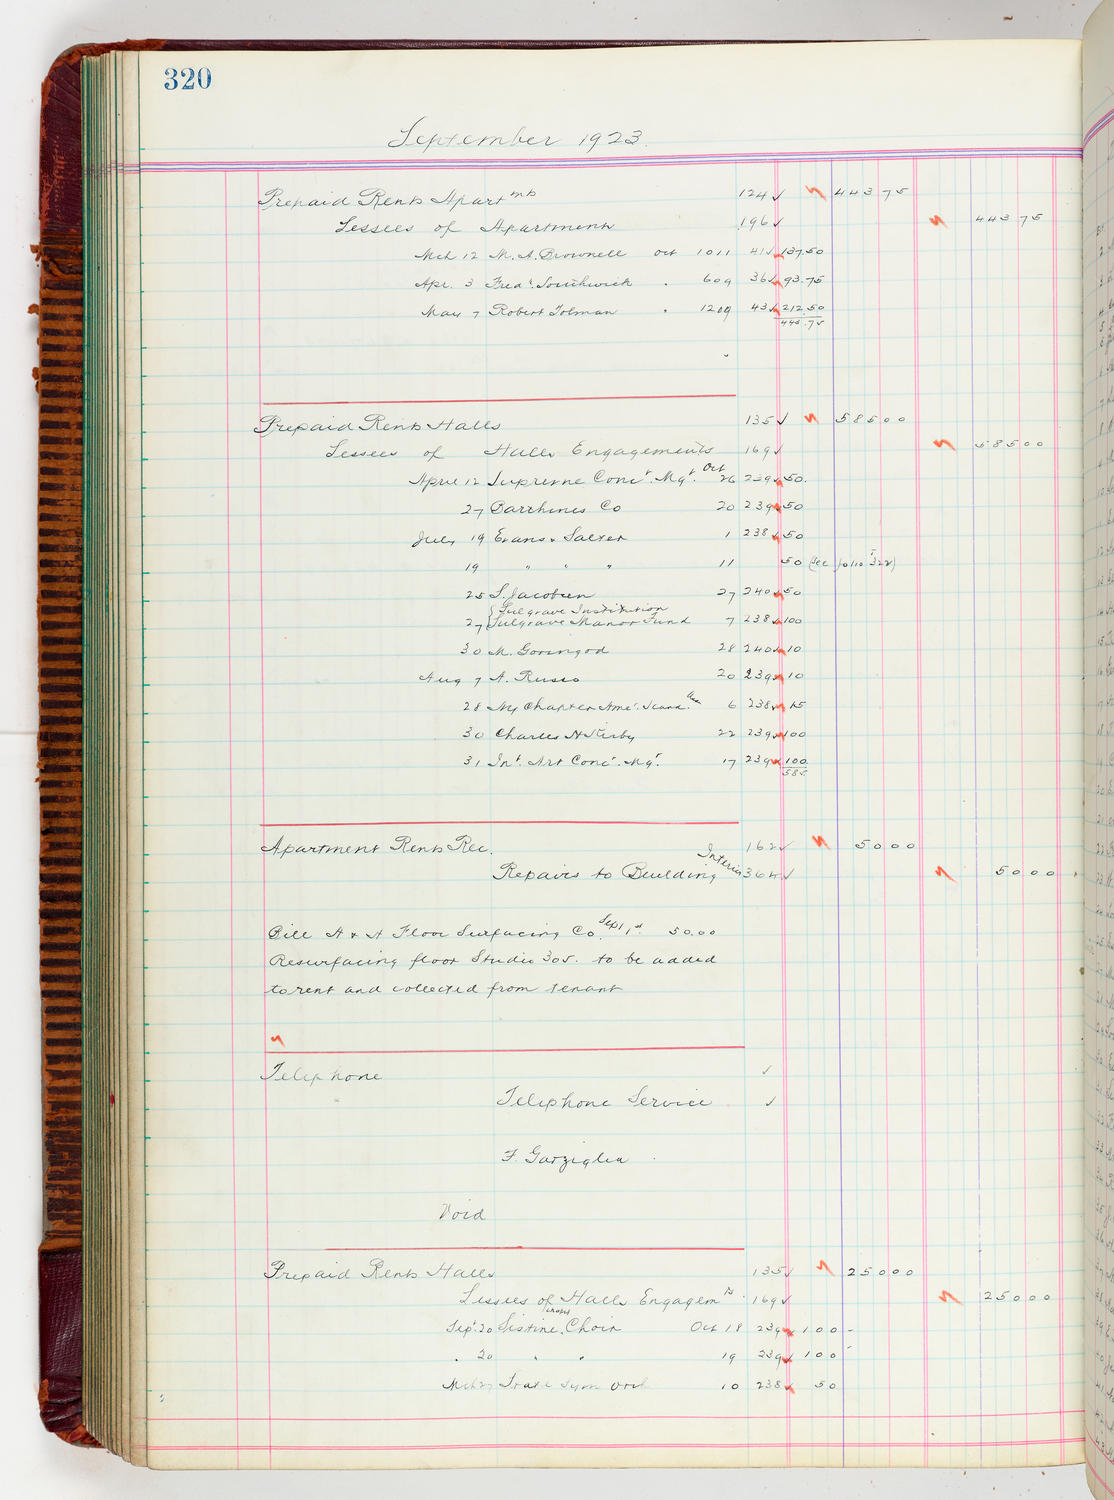 320
September 1923.
Prepaid Rents Apartmts 124 ✓ 443 75
Lessees of Apartments 196 ✓ 443 75
Mch 12 M. A. Brownell Oct 1011 41 ✓ 137.50
Apr. 3 Fredk. Southwick " 609 36 ✓ 93.75
May 7 Robert Tolman " 1209 43 ✓ 212.50
443.75
Prepaid Rents Halls 135 ✓ 585 00
Lessees of Halls Engagements 169 ✓ 585 00
April 12 Supreme Conct. Mgt. Oct 26 239 ✓ 50.
27 Co 20 239 50
July 19 Evans & Salter 1 238 50
19 " " " 11 50 (See folio 322)
25 S. Jacobsen 27 240 50
Sulgrave Institution
27 Sulgrave Manor Fund 7 238 ✓ 100
30 M. 28 240 ✓ 10
Aug 7 A. Russo 20 239 10
28 Ny Chapter Ame. Scand. 6 238 15
30 Charles H Kirby 22 239 ✓ 100
31 Int. Art Conct. Mgt. 17 239 100
585
Apartment Rents Rec. 162 ✓ 50 00
Repairs to Building Interior 364 ✓ 50 00
Bill A & A Floor Surfacing Co. Sept 1st. 50.00
Resurfacing floor Studio 305. to be added
to rent and collected from tenant
Telephone ✓
Telephone Service ✓
F. Garziglia
Void
Prepaid Rents Halls 135 ✓ 250 00
Lessees of Halls Engagemts 169 ✓ 250 00
Sept. 20 Sistine Choir Oct 18 239 100 -
" 20 " " 19 239 ✓ 100 -
Mch 27 State Sym Orch 10 238 50